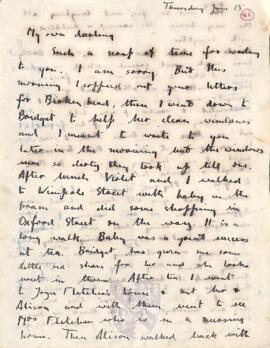 Thursday June 15
My own darling
Such a scrap of time for writing
to you. I am sorry. But this
morning I copied out your letters
for Birkenhead, then I went down to
Bridget to help her clean windows
and I meant to write to you
later in the morning but the windows
were so dirty they took up till one.
After lunch Violet and I walked
to Wimpole Street with baby in the
pram and did some shopping in
Oxford Street on the way. It is a
long walk. Baby was a great success
at tea. Bridget has given me some
little red shoes for her and she looks
sweet in them. After tea I went
to Joyce Fletcher's home & met her &
Alison and with them went to see
Mrs Fletcher who is in a nursing
home. Then Alison walked back with